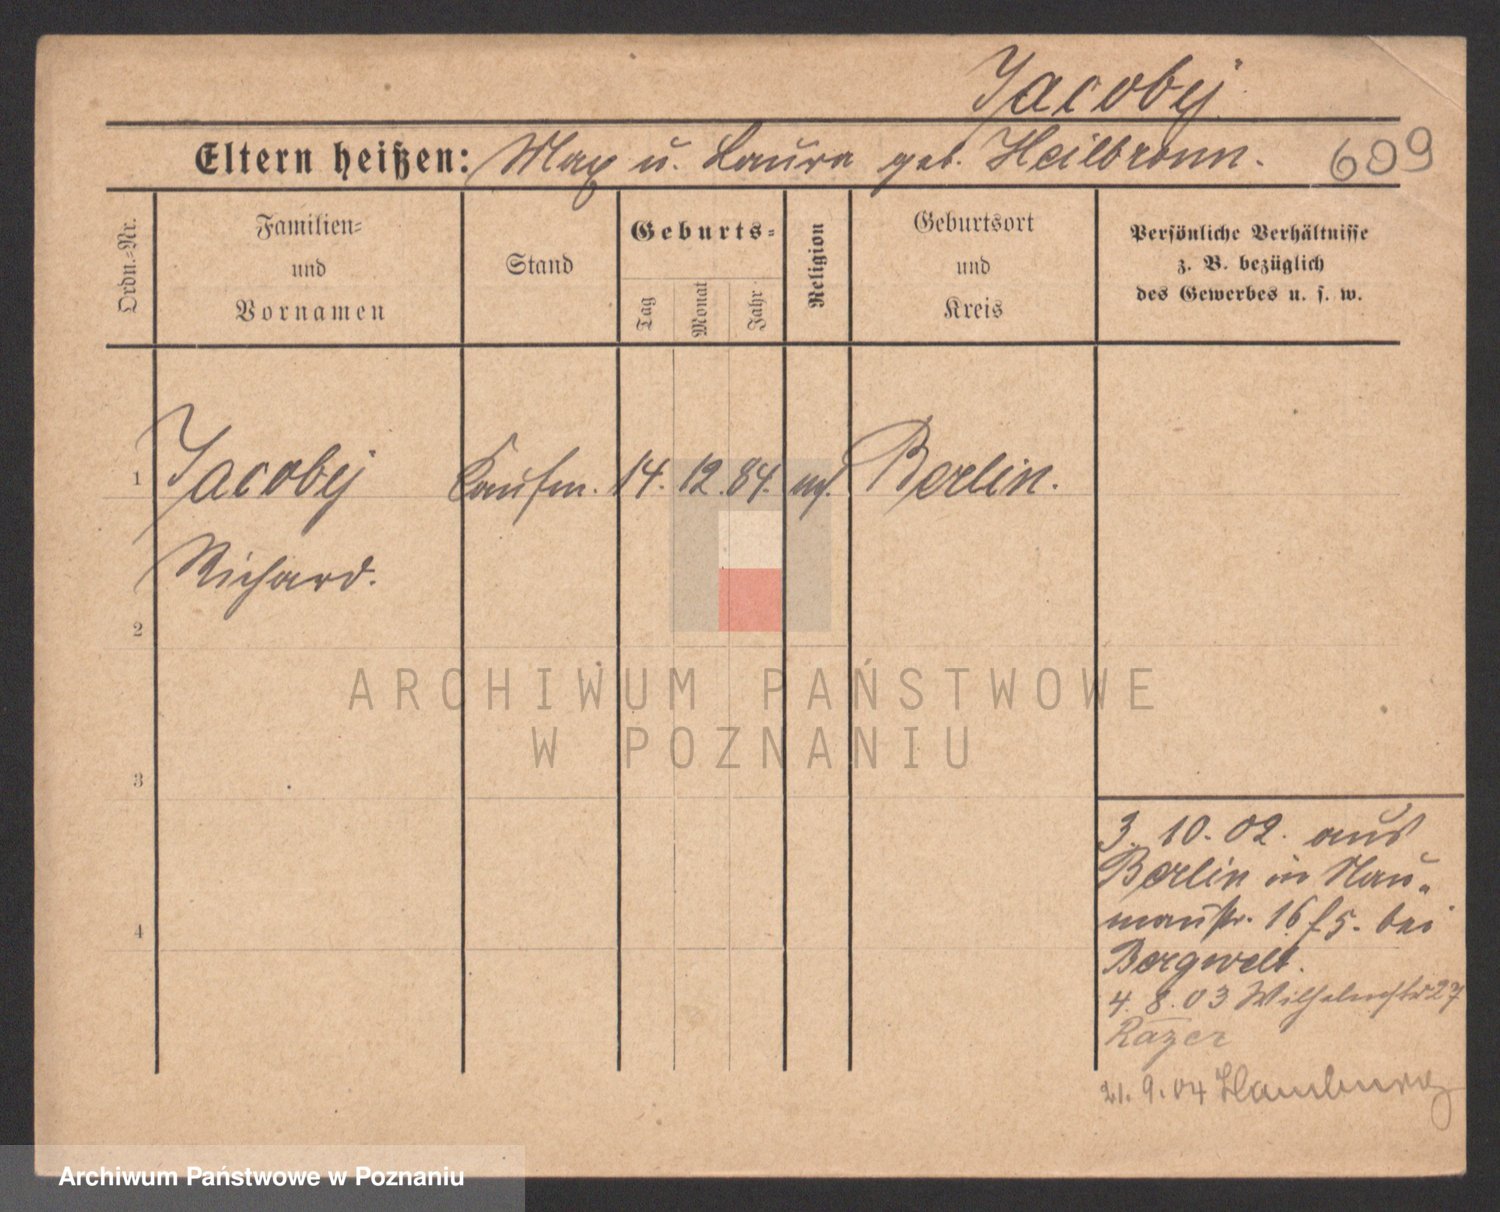 Jacobij
Eltern heißen: Max u. Laura geb. Heilbronn. 609
Ordn.-Nr.
Familien-
und
Vornamen
Stand
Geburts-
Tag
Monat
Jahr
Religion
Geburtsort
und
Kreis
Persönliche Verhältnisse
z. B. bezüglich
des Gewerbes u. s. w.
1 Jacobij Kaufm. 14. 12. 84. Berlin.
Richard.
2
ARCHIWUM PAŃSTWOWE
W POZNANIU
3
3. 10. 02. aus
Berlin in Nau-
mannstr. 16 bei
4
4. 8. 03 Wilhelmstr 27
21. 9. 04 Hamburg
Archiwum Państwowe w Poznaniu